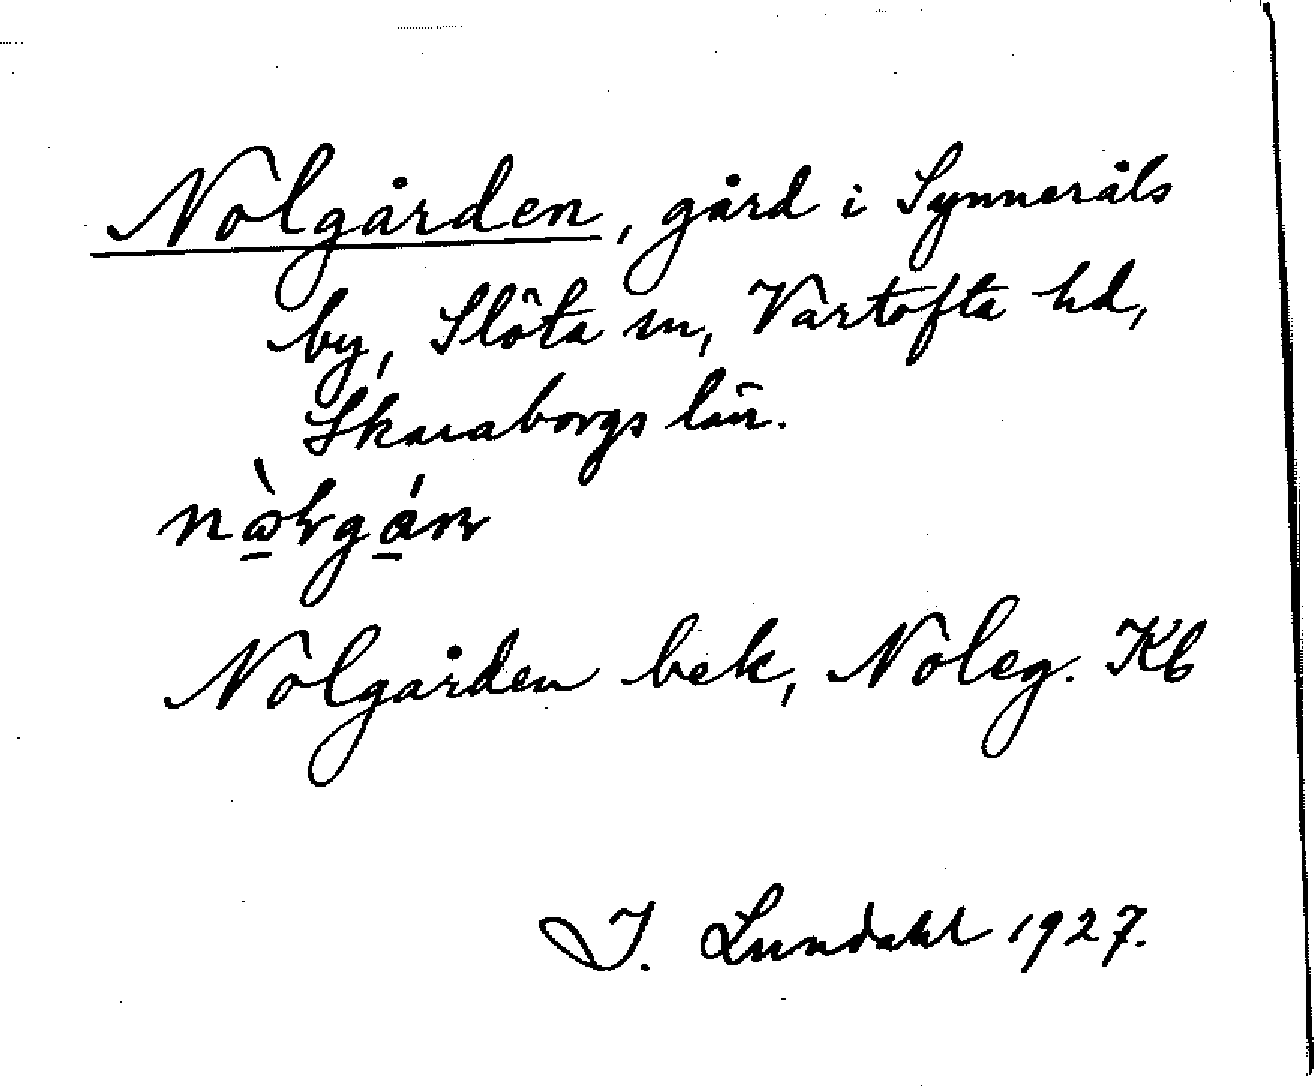 Nolgården, gård i Synneråls
by, Slöta sn, Vartofta hd,
Skaraborgs län.
Nolgården bek, Noleg. Kb
I. Lundahl 1927.